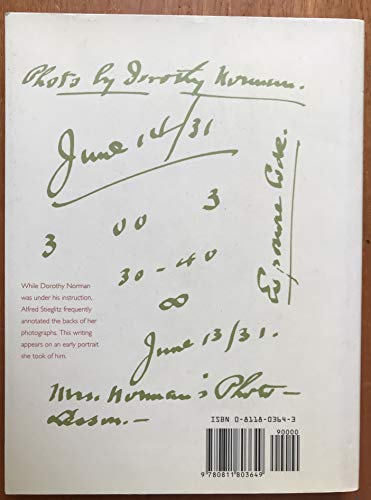 Photo by Dorothy Norman.
June 14/31
3 00 3
30-40
∞
Exposure Side.
While Dorothy Norman
was under his instruction,
Alfred Stieglitz frequently
annotated the backs of her
photographs. This writing
appears on an early portrait
she took of him.
June 13/31.
Mrs. Norman's Photo-
Lesson.-
ISBN 0-8118-0364-3
90000
9 780811 803649